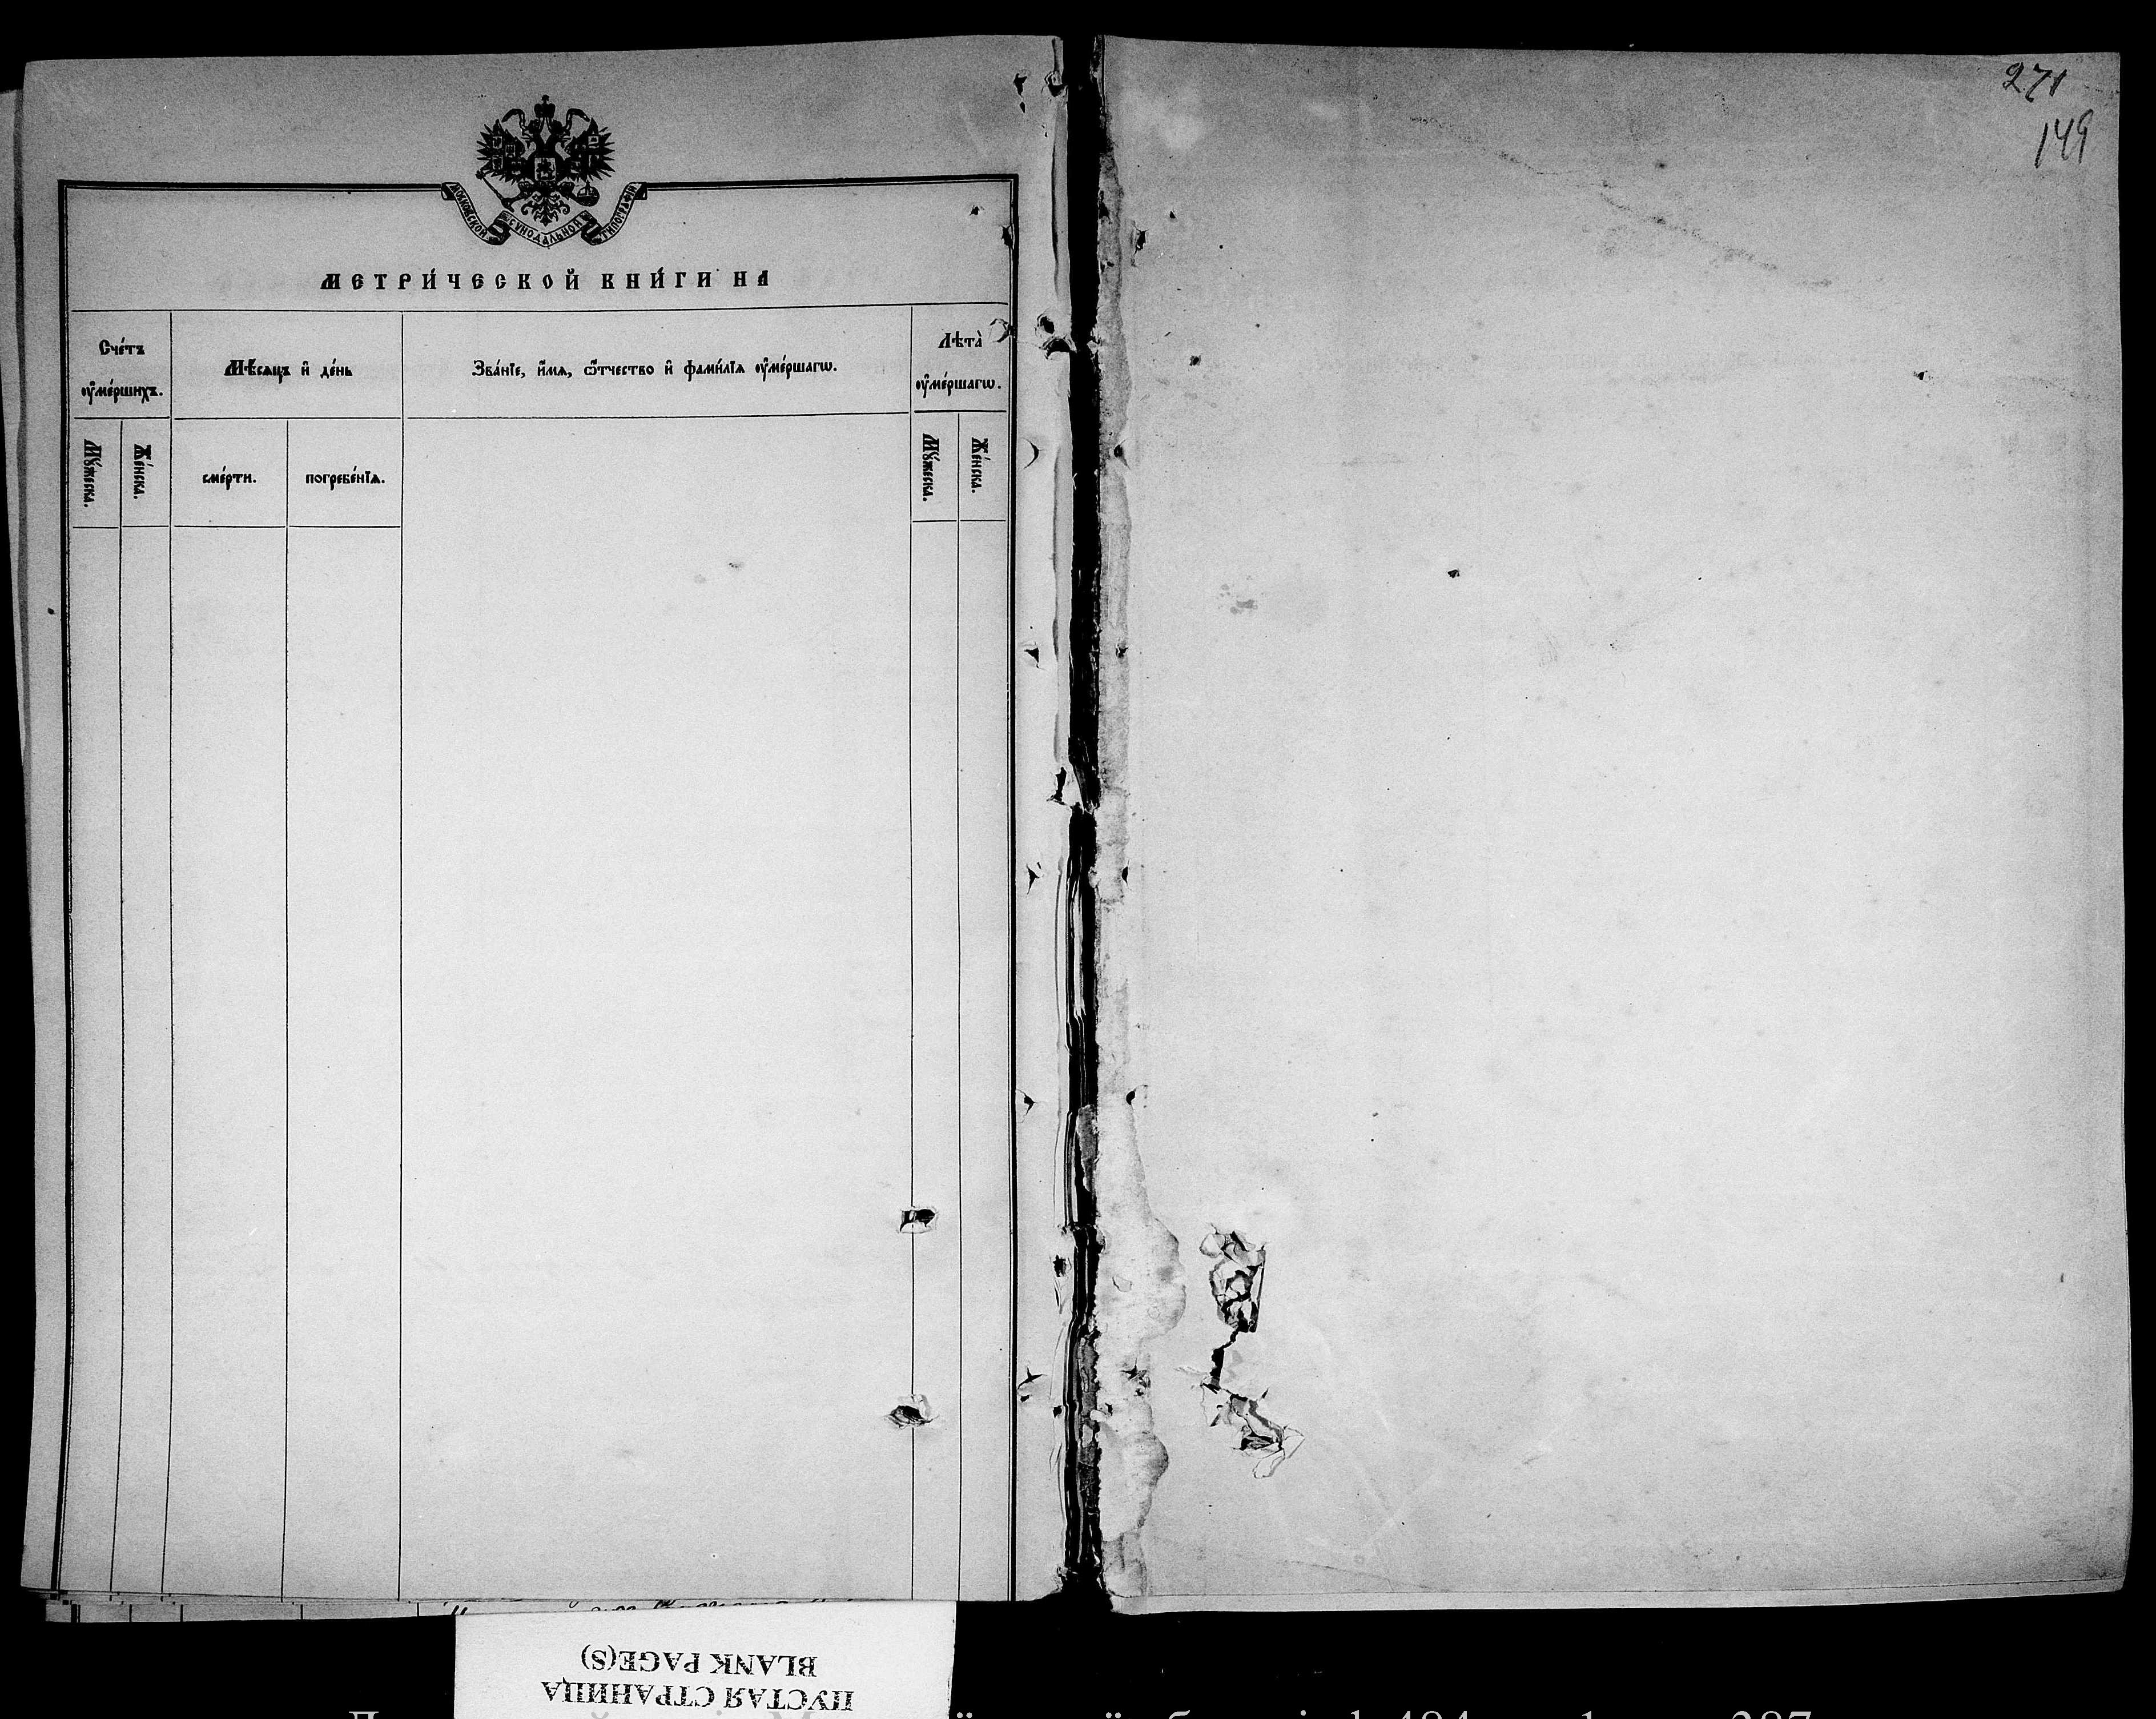 271
149
МОСКОВСКОЙ СѴНОДАЛЬНОЙ ТИПОГРАФІИ
МЕТРИ́ЧЕСКОЙ КНИ́ГИ НА
Сче́тъ ᲂу҆ме́ршихъ.
Мѣ́сѧцъ и҆ де́нь
Зва́нїе, и҆́мѧ, ѻ҆́тчество и҆ фами́лїѧ ᲂу҆ме́ршагѡ.
Лѣта̀ ᲂу҆ме́ршагѡ.
Мꙋ́жеска.
Же́нска.
сме́рти.
погребе́нїѧ.
Мꙋ́жеска.
Же́нска.
ПУСТАЯ СТРАНИЦА
BLANK PAGE(S)